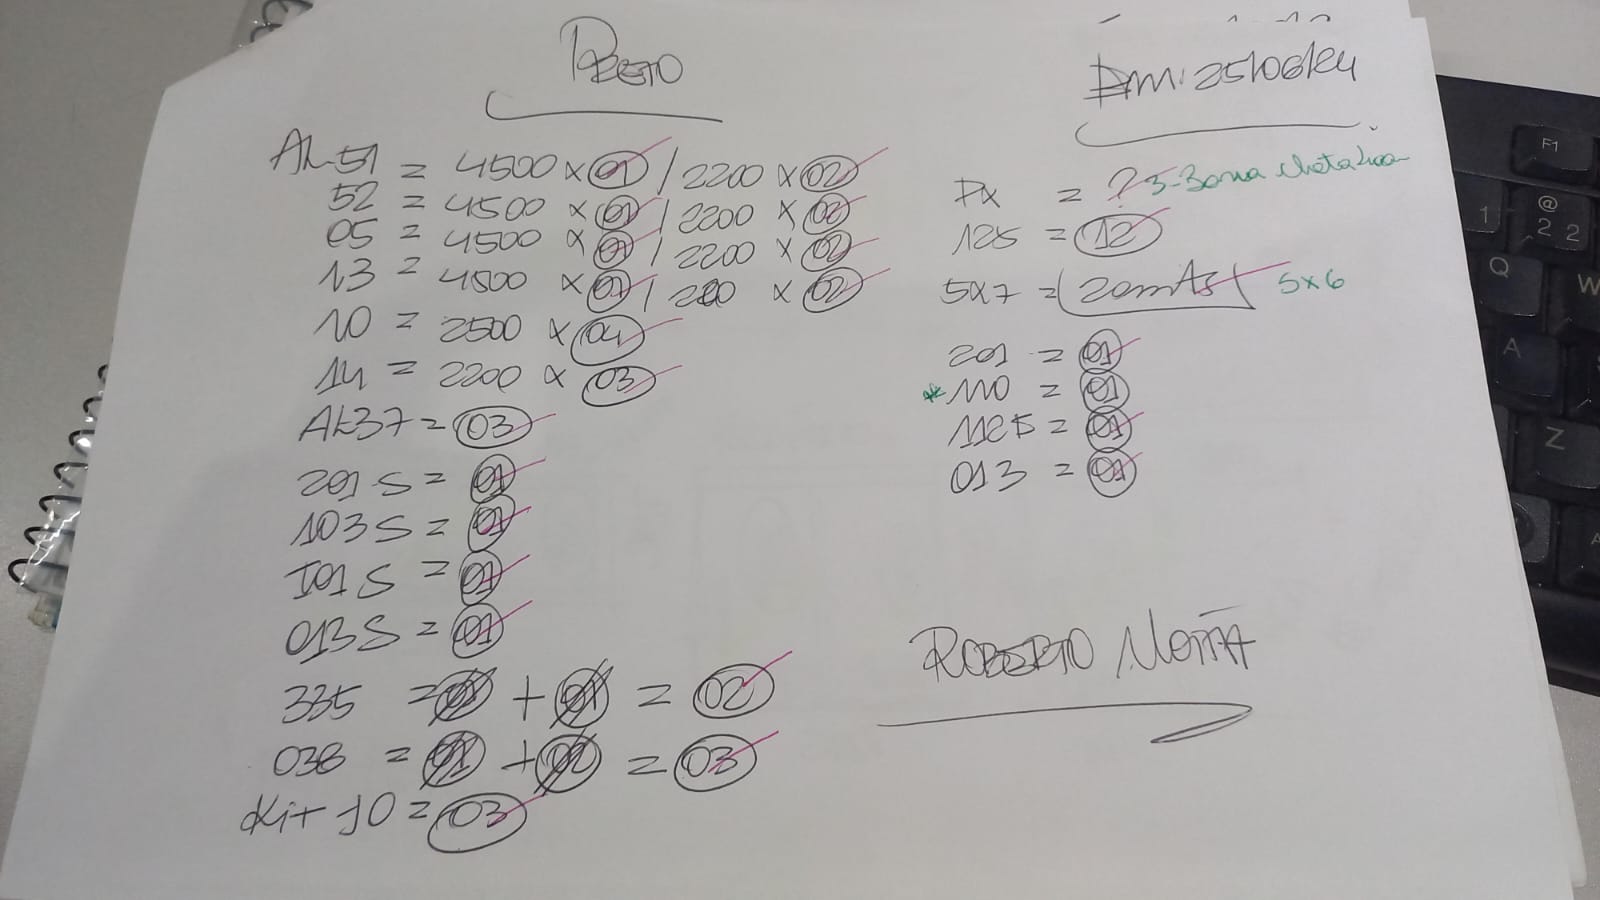 PRETO
EM: 25/06/24
AL-51 = 4500 x 01 / 2200 x 02
52 = 4500 x 01 / 2200 x 02
05 = 4500 x 01 / 2200 x 02
13 = 4500 x 01 / 2200 x 02
10 = 2500 x 04
14 = 2200 x 03
AL37 = 03
201 S = 01
103 S = 01
I01 S = 01
013 S = 01
335 = 01 + 01 = 02
038 = 01 + 02 = 03
Kit 10 = 03
PX = ? 3-
125 = 12
5x7 = (20mts) 5x6
201 = 01
*110 = 01
1125 = 01
013 = 01
ROBERTO